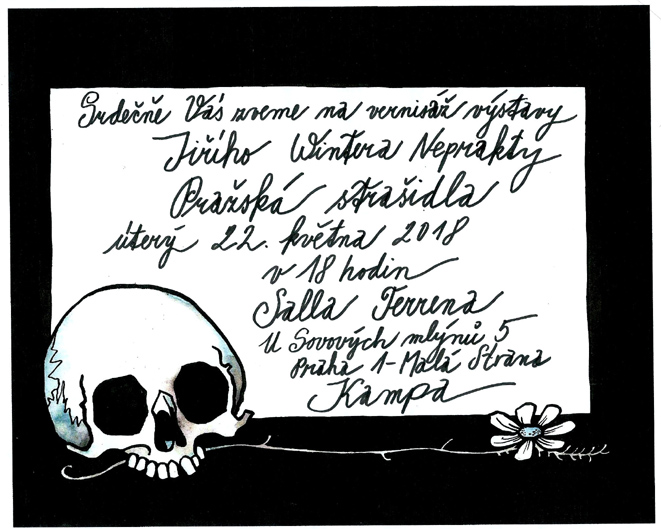 Srdečně Vás zveme na vernisáž výstavy
Jiřího Wintera Neprakty
Pražská strašidla
úterý 22. května 2018
v 18 hodin
Salla Terrena
U Sovových mlýnů 5
Praha 1- Malá Strana
Kampa